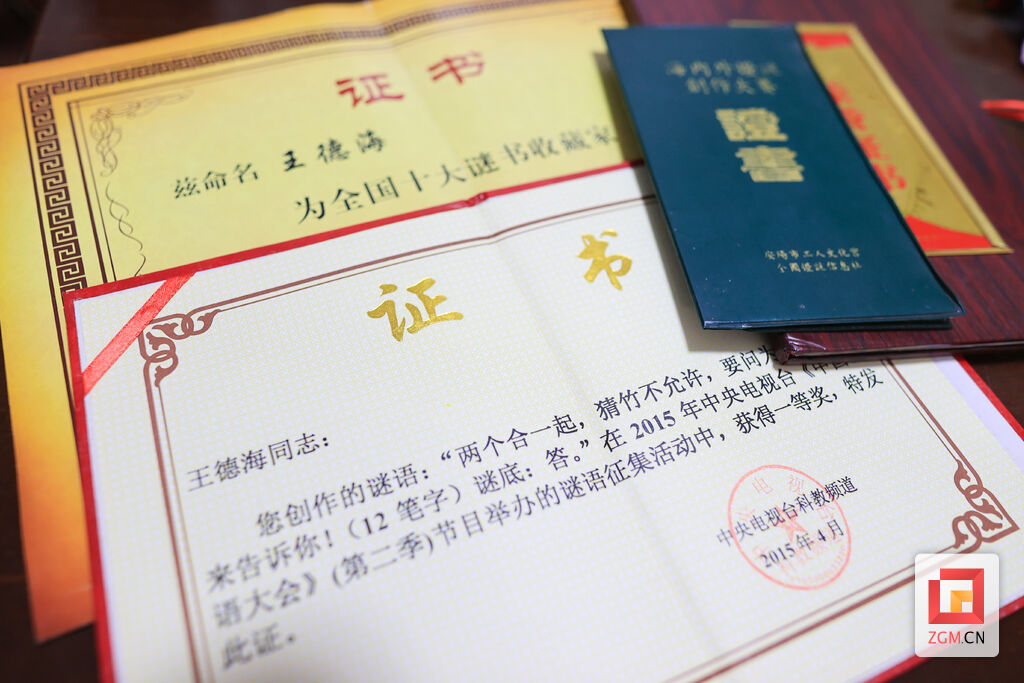 证书
兹命名 王德海
为全国十大谜书收藏家
海内外谜迷
创作大赛
證書
安阳市工人文化宫
全國謎誌信息社
证 书
王德海同志：
您创作的谜语：“两个合一起，猜竹不允许，要问为
来告诉你！（12 笔字）谜底：答。”在 2015 年中央电视台《中
语大会》(第二季)节目举办的谜语征集活动中，获得一等奖，特发
此证。
中央电视台科教频道
2015 年 4 月
ZGM.CN